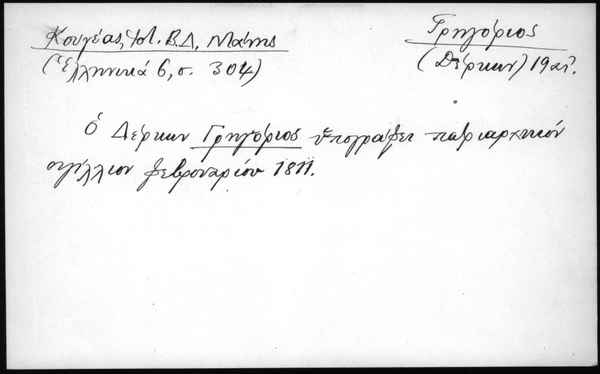 Κουγέας, Ἱστ. Β.Δ. Μάνης
(Ἑλληνικά 6, σ. 304)
Γρηγόριος
(Δέρκων) 19 αἰ.
ὁ Δέρκων Γρηγόριος ὑπογράφει πατριαρχικόν
σιγίλλιον φεβρουαρίου 1811.